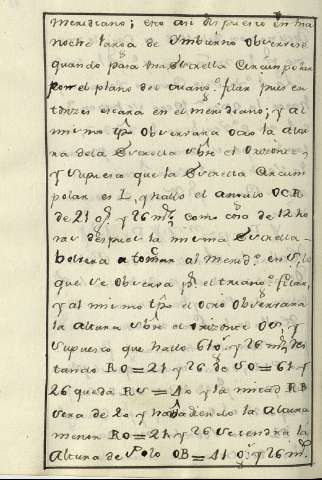 meridiano; esto asi dispuesto en una
noche larga de Imbierno observese
quando pasa una Estrella Circumpolar
por el plano del triang.º filar pues en
tonzes estara en el meridiano; y al
mismo tpo observara otro la altu
ra dela Estrella sobre el orizonte,
y supuesto que la Estrella Circum
polar es L, y hallo el angulo OCR
de 21 g.s y 26 m.s como cosa de 12 ho
ras despues la misma Estrella
bolvera a tocar al merid.º en S, lo
que se observa p.r el triang.º filar,
y al mismo tpo el otro observara
la altura sobre el orizonte OS, y
supuesto que hallo 61 g.s y 26 m.s Res
tando RO = 21 y 26 de SO = 61 y
26 queda RS = 40 y la mitad RB
sera de 20 y hañadiendo la altura
menor RO = 21 y 26 se tendra la
Altura de Polo OB = 41 g.s y 26 m.s